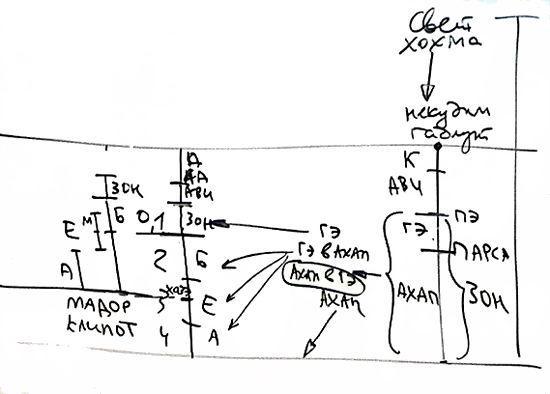 Свет
хохма
некудим
гадлут
К
АВИ
ПЭ
ГЭ
ПАРСА
АХАП
ЗОН
АА
АВИ
ЗОН
ЗОН
0,1
М
Б
Е
А
2
Б
3
Е
4
А
ГЭ
ГЭ в АХАП
АХАП в ГЭ
АХАП
МАДОР
КЛИПОТ